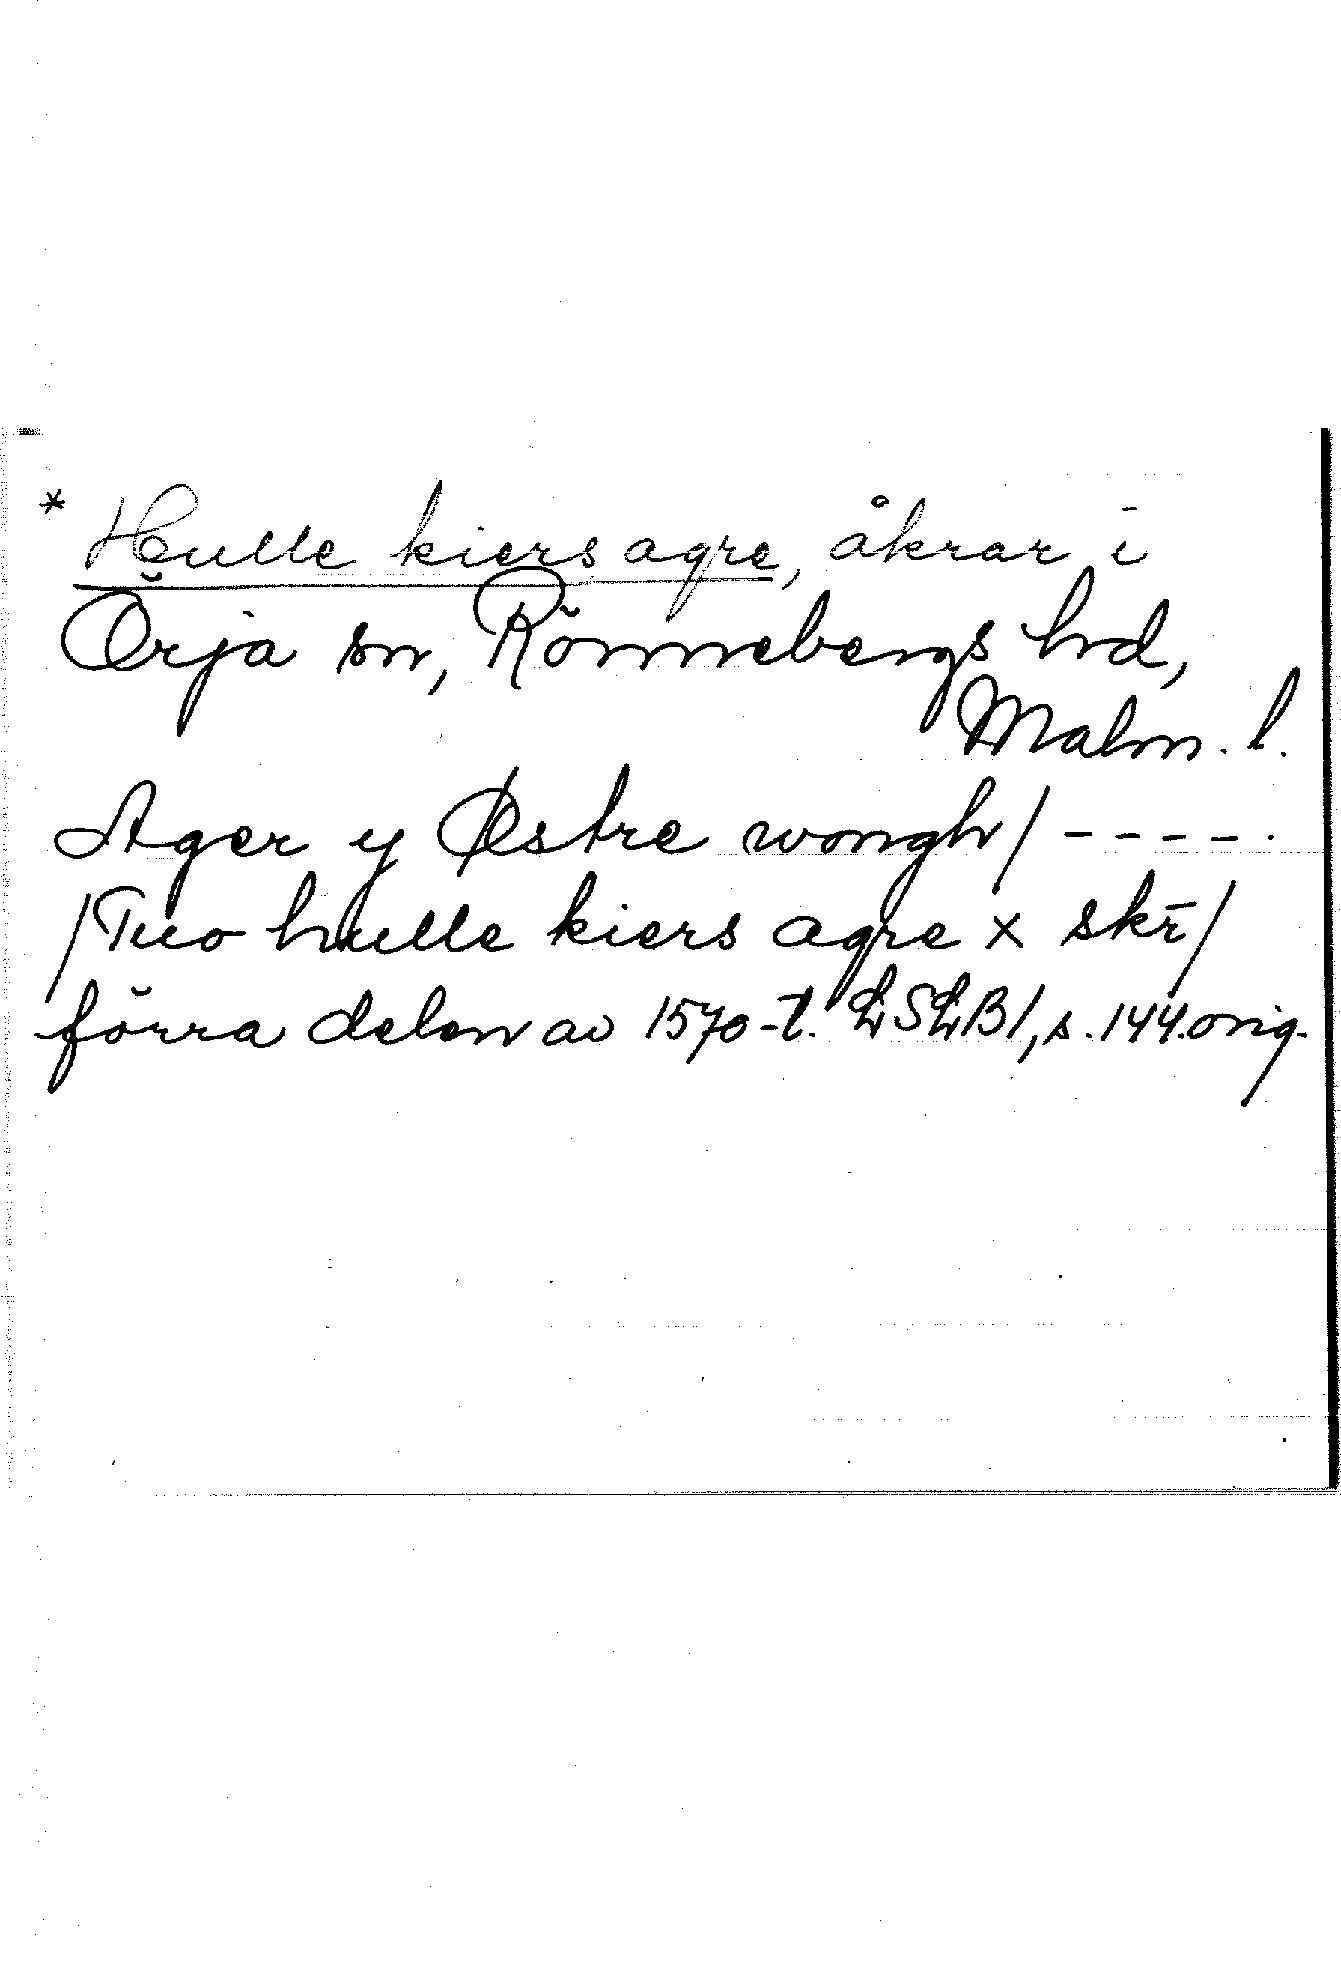 * Hulle kiers agre, åkrar i
Örja sn, Rönnebergs hrd,
Malm. l.
Ager y Østre wongh/ -----.
/Tuo hulle kiers agre x skr̄/
förra delen av 1570-t. LSLB1, s. 144. orig.